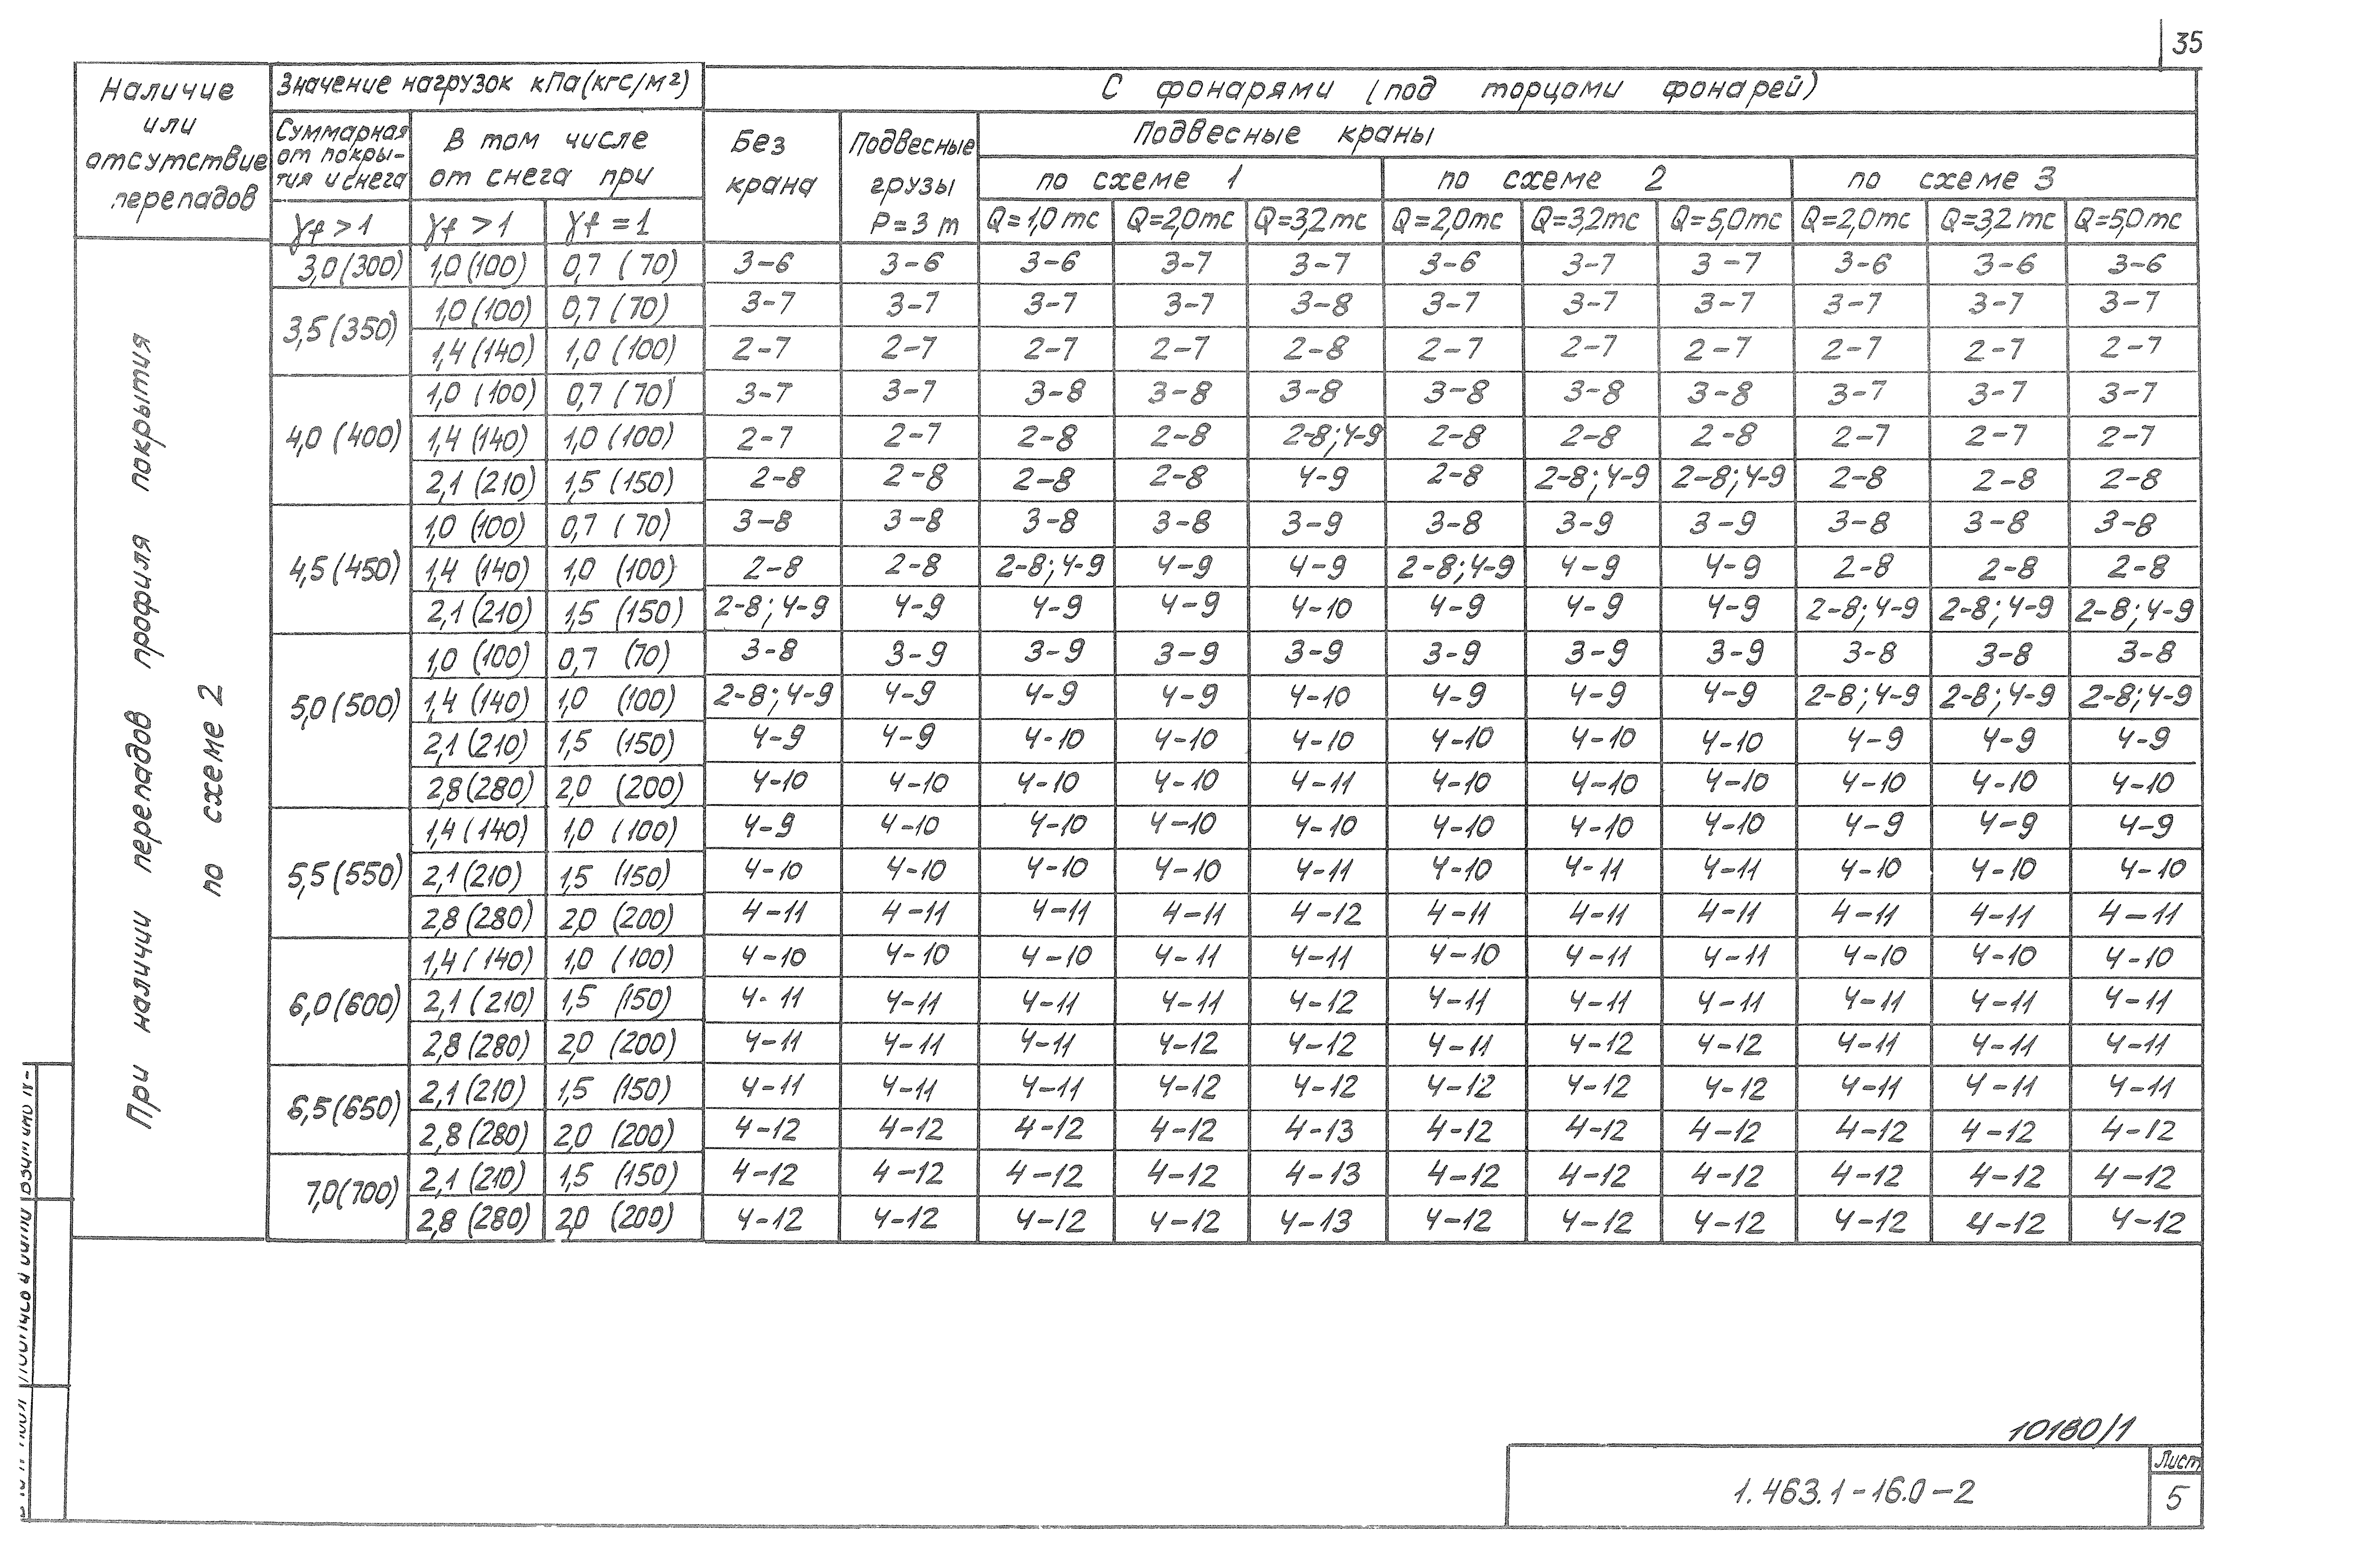 35
Наличие или отсутствие перепадов
Значение нагрузок кПа (кгс/м2)
С фонарями (под торцами фонарей)
Суммарная от покры-тия и снега
В том числе от снега при
Без крана
Подвесные грузы P=3 т
Подвесные краны
по схеме 1
по схеме 2
по схеме 3
γf >1 γf >1 γf =1
Q=1,0тс Q=2,0тс Q=3,2тс Q=2,0тс Q=3,2тс Q=5,0тс Q=2,0тс Q=3,2тс Q=5,0тс
При наличии перепадов профиля покрытия
по схеме 2
3,0(300) 1,0(100) 0,7 (70) 3-6 3-6 3-6 3-7 3-7 3-6 3-7 3-7 3-6 3-6 3-6
3,5(350) 1,0(100) 0,7(70) 3-7 3-7 3-7 3-7 3-8 3-7 3-7 3-7 3-7 3-7 3-7
1,4(140) 1,0(100) 2-7 2-7 2-7 2-7 2-8 2-7 2-7 2-7 2-7 2-7 2-7
4,0(400) 1,0(100) 0,7(70) 3-7 3-7 3-8 3-8 3-8 3-8 3-8 3-8 3-7 3-7 3-7
1,4(140) 1,0(100) 2-7 2-7 2-8 2-8 2-8;4-9 2-8 2-8 2-8 2-7 2-7 2-7
2,1(210) 1,5(150) 2-8 2-8 2-8 2-8 4-9 2-8 2-8;4-9 2-8;4-9 2-8 2-8 2-8
4,5(450) 1,0(100) 0,7(70) 3-8 3-8 3-8 3-8 3-9 3-8 3-9 3-9 3-8 3-8 3-8
1,4(140) 1,0(100) 2-8 2-8 2-8;4-9 4-9 4-9 2-8;4-9 4-9 4-9 2-8 2-8 2-8
2,1(210) 1,5(150) 2-8;4-9 4-9 4-9 4-9 4-10 4-9 4-9 4-9 2-8;4-9 2-8;4-9 2-8;4-9
5,0(500) 1,0(100) 0,7(70) 3-8 3-9 3-9 3-9 3-9 3-9 3-9 3-9 3-8 3-8 3-8
1,4(140) 1,0(100) 2-8;4-9 4-9 4-9 4-9 4-10 4-9 4-9 4-9 2-8;4-9 2-8;4-9 2-8;4-9
2,1(210) 1,5(150) 4-9 4-9 4-10 4-10 4-10 4-10 4-10 4-10 4-9 4-9 4-9
2,8(280) 2,0(200) 4-10 4-10 4-10 4-10 4-11 4-10 4-10 4-10 4-10 4-10 4-10
5,5(550) 1,4(140) 1,0(100) 4-9 4-10 4-10 4-10 4-10 4-10 4-10 4-10 4-9 4-9 4-9
2,1(210) 1,5(150) 4-10 4-10 4-10 4-10 4-11 4-10 4-11 4-11 4-10 4-10 4-10
2,8(280) 2,0(200) 4-11 4-11 4-11 4-11 4-12 4-11 4-11 4-11 4-11 4-11 4-11
6,0(600) 1,4(140) 1,0(100) 4-10 4-10 4-10 4-11 4-11 4-10 4-11 4-11 4-10 4-10 4-10
2,1(210) 1,5(150) 4-11 4-11 4-11 4-11 4-12 4-11 4-11 4-11 4-11 4-11 4-11
2,8(280) 2,0(200) 4-11 4-11 4-11 4-12 4-12 4-11 4-12 4-12 4-11 4-11 4-11
6,5(650) 2,1(210) 1,5(150) 4-11 4-11 4-11 4-12 4-12 4-12 4-12 4-12 4-11 4-11 4-11
2,8(280) 2,0(200) 4-12 4-12 4-12 4-12 4-13 4-12 4-12 4-12 4-12 4-12 4-12
7,0(700) 2,1(210) 1,5(150) 4-12 4-12 4-12 4-12 4-13 4-12 4-12 4-12 4-12 4-12 4-12
2,8(280) 2,0(200) 4-12 4-12 4-12 4-12 4-13 4-12 4-12 4-12 4-12 4-12 4-12
10180/1
1.463.1-16.0-2
Лист
5